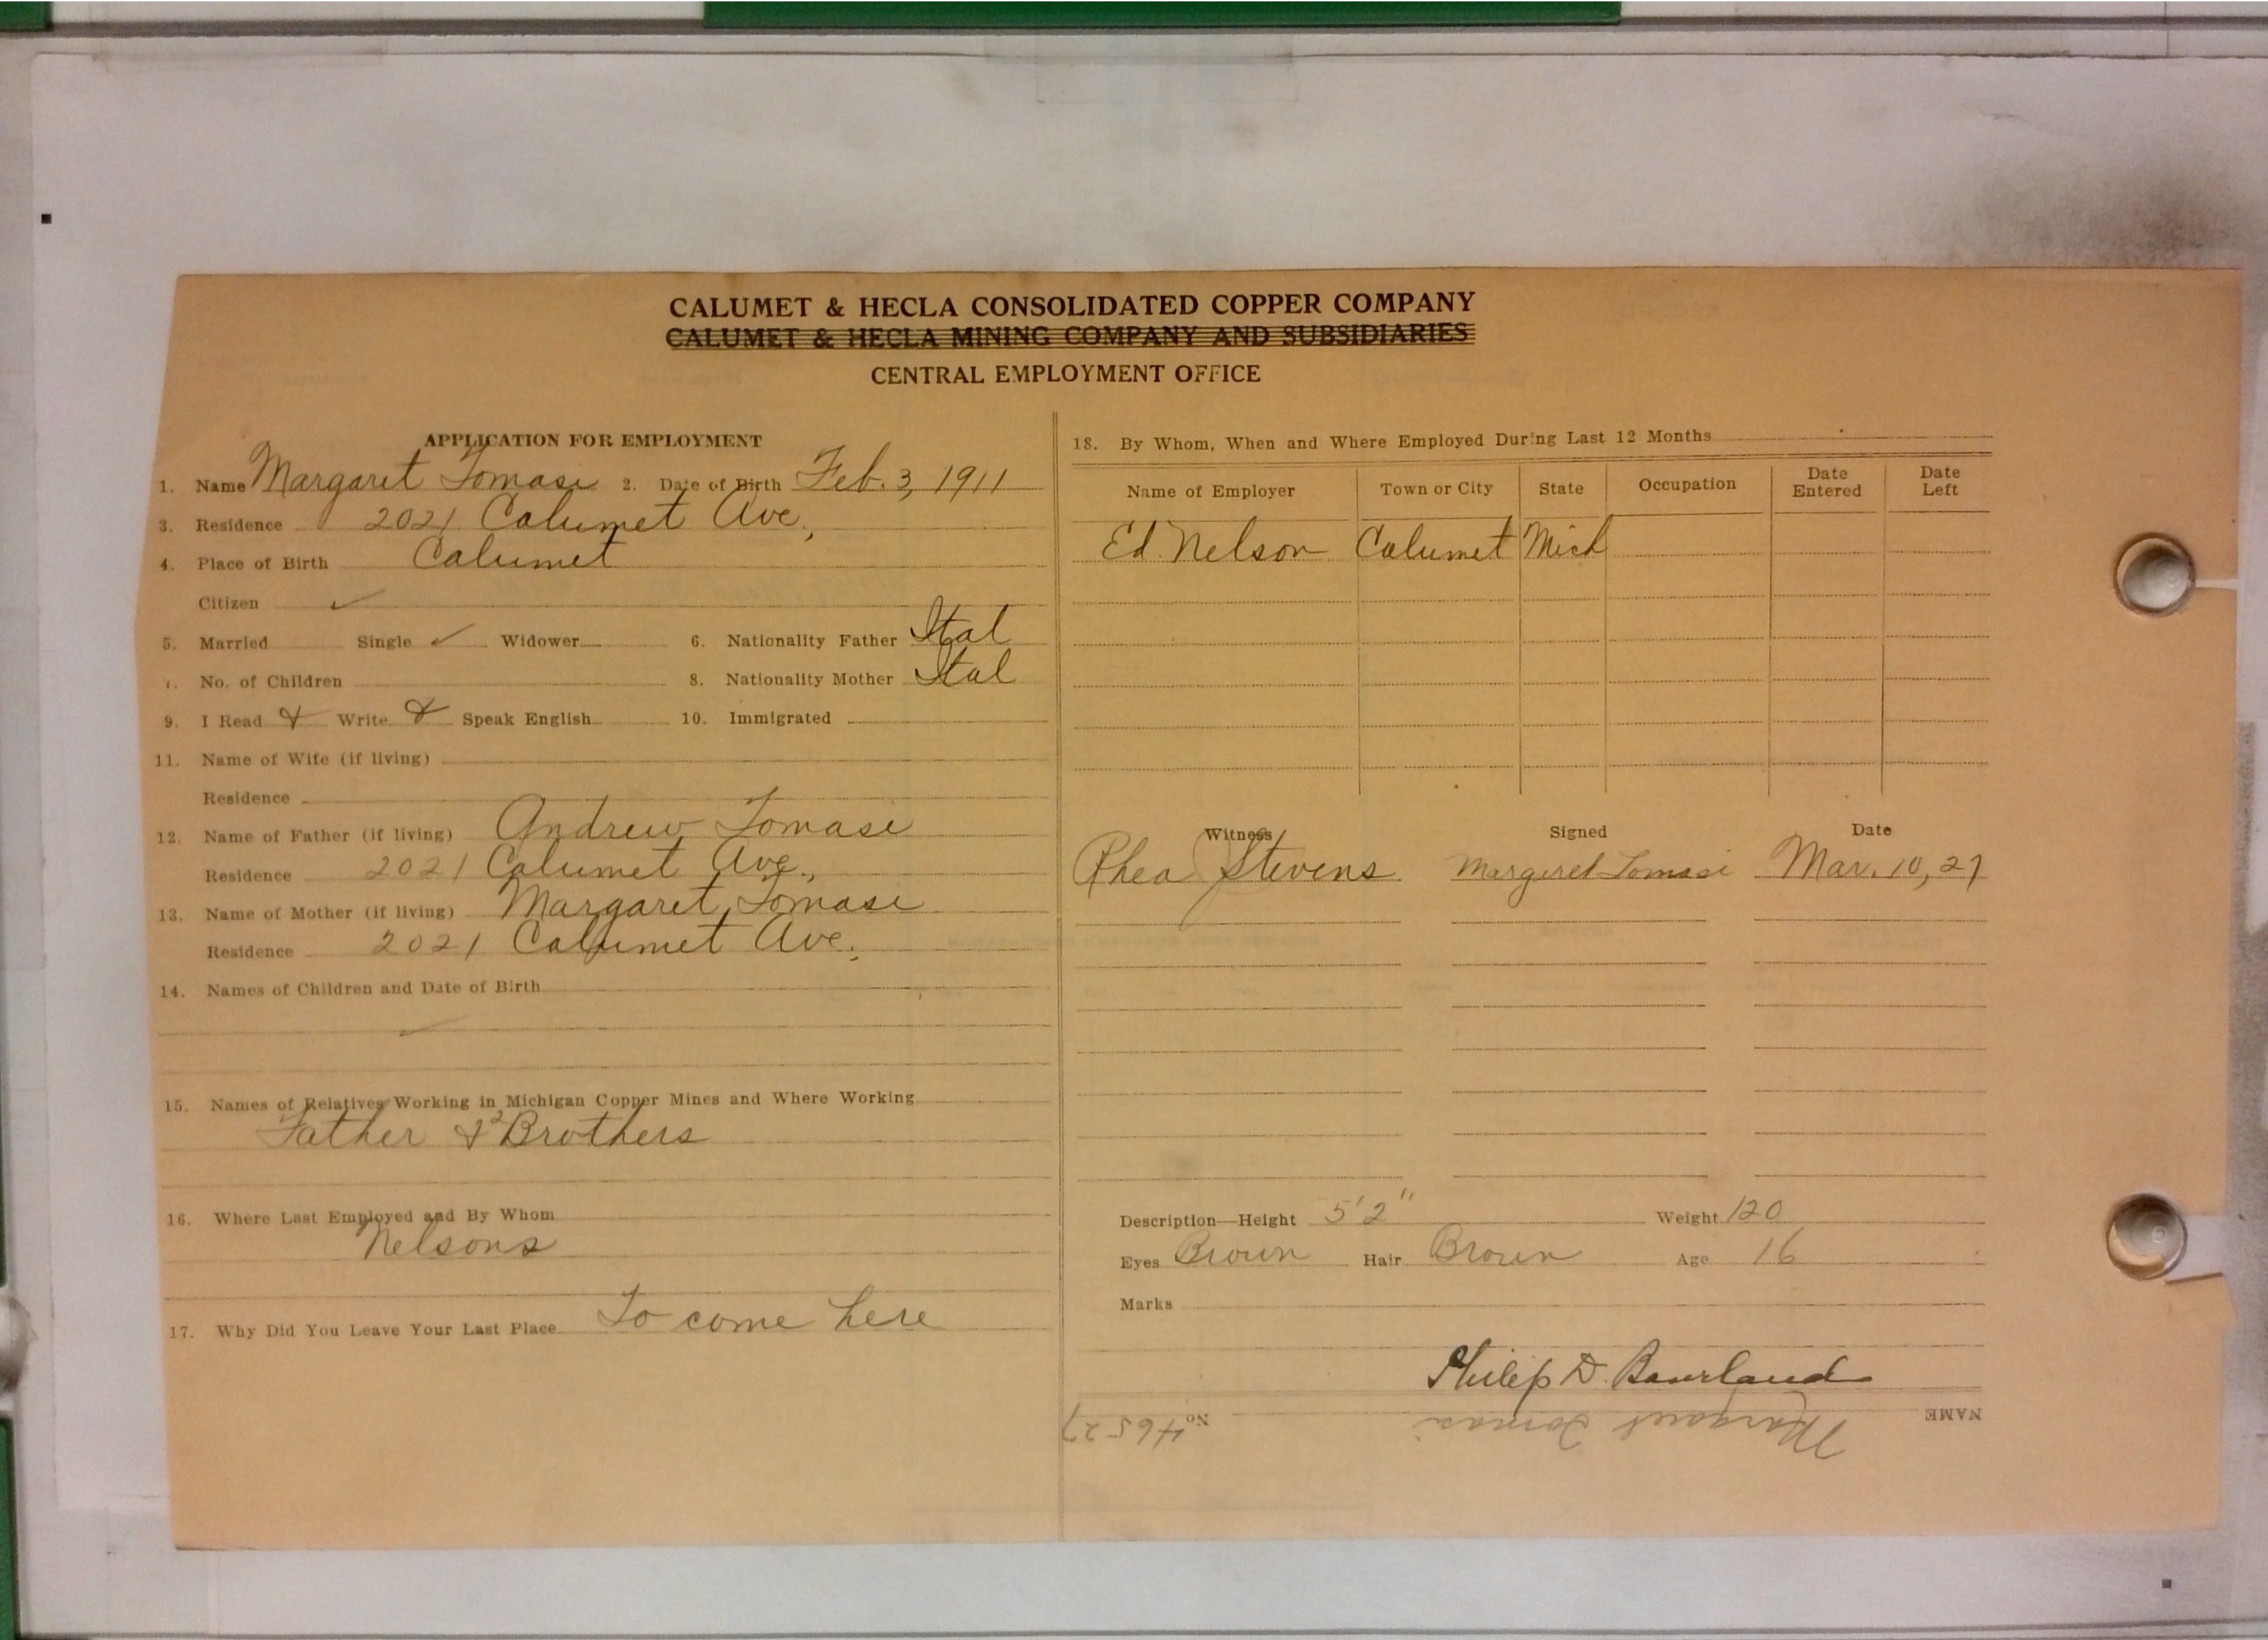 CALUMET & HECLA CONSOLIDATED COPPER COMPANY
CALUMET & HECLA MINING COMPANY AND SUBSIDIARIES
CENTRAL EMPLOYMENT OFFICE
APPLICATION FOR EMPLOYMENT
1. Name Margaret Tomasi 2. Date of Birth Feb. 3, 1911
3. Residence 2021 Calumet Ave.,
4. Place of Birth Calumet
Citizen ✓
5. Married Single ✓ Widower 6. Nationality Father Ital
7. No. of Children 8. Nationality Mother Ital
9. I Read & Write & Speak English 10. Immigrated
11. Name of Wife (if living)
Residence
12. Name of Father (if living) Andrew Tomasi
Residence 2021 Calumet Ave.,
13. Name of Mother (if living) Margaret Tomasi
Residence 2021 Calumet Ave.
14. Names of Children and Date of Birth
✓
15. Names of Relatives Working in Michigan Copper Mines and Where Working
Father & 2 Brothers
16. Where Last Employed and By Whom
Nelsons
17. Why Did You Leave Your Last Place To come here
18. By Whom, When and Where Employed During Last 12 Months
Name of Employer Town or City State Occupation Date Entered Date Left
Ed. Nelson Calumet Mich
Witness Signed Date
Rhea Stevens Margaret Tomasi Mar. 10, 27
Description—Height 5'2" Weight 120
Eyes Brown Hair Brown Age 16
Marks
Philip D. Bourland
NAME Margaret Tomasi No. 46527